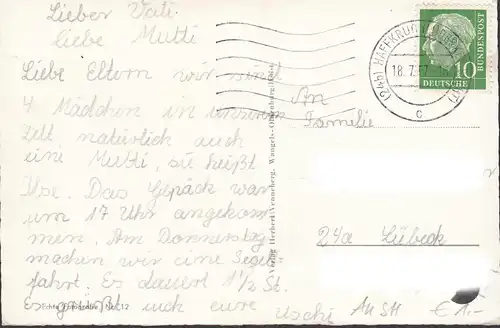 Lieber Vati.
liebe Mutti
Liebe Eltern wir sind
4 Mädchen in unserem
Zelt, natürlich auch
eine Mutti, sie heißt
Ilse. Das Gepäck war
um 17 Uhr angekom
men. Am Donnerstag
machen wir eine Segel
fahrt. Es dauert 1 1/2 St.
Es grüßt euch eure
Uschi
An
Familie
24a Lübeck
AK SH € 1.-
Verlag Herbert Venneberg, Wangels-Oldenburg/Holst.
Nr. 12
(24b) HAFFKRUG
18.7.57
c
10
DEUTSCHE
BUNDESPOST